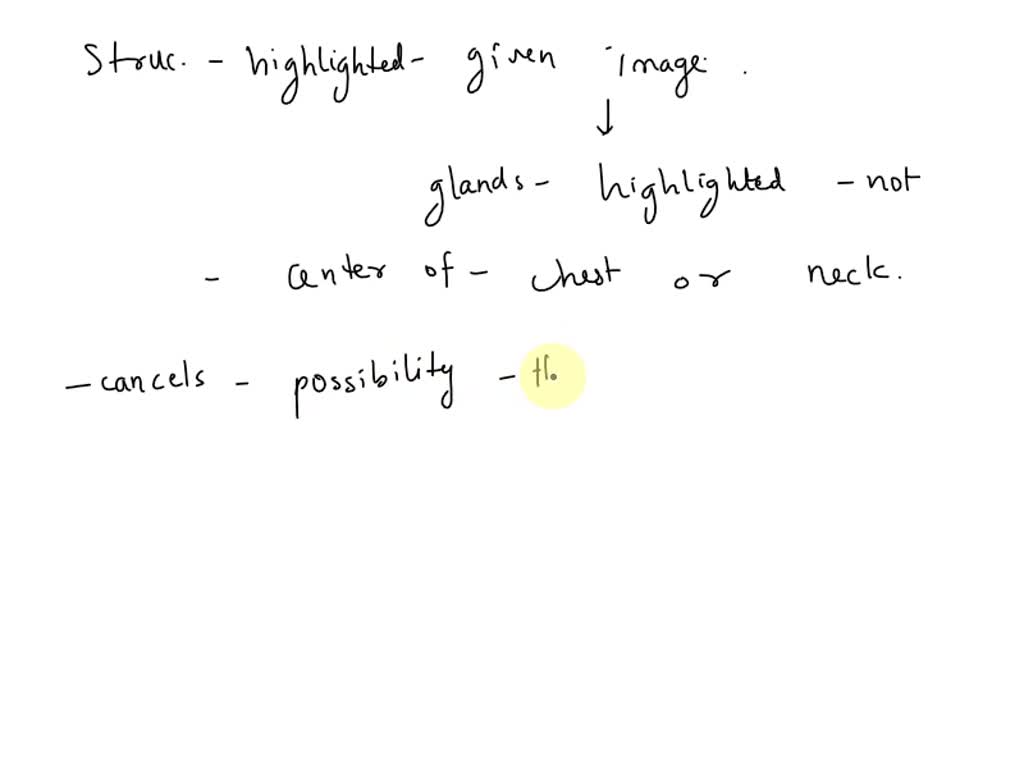 Struc. - highlighted - given image.
↓
glands - highlighted - not
- center of - chest or neck.
- cancels - possibility - th